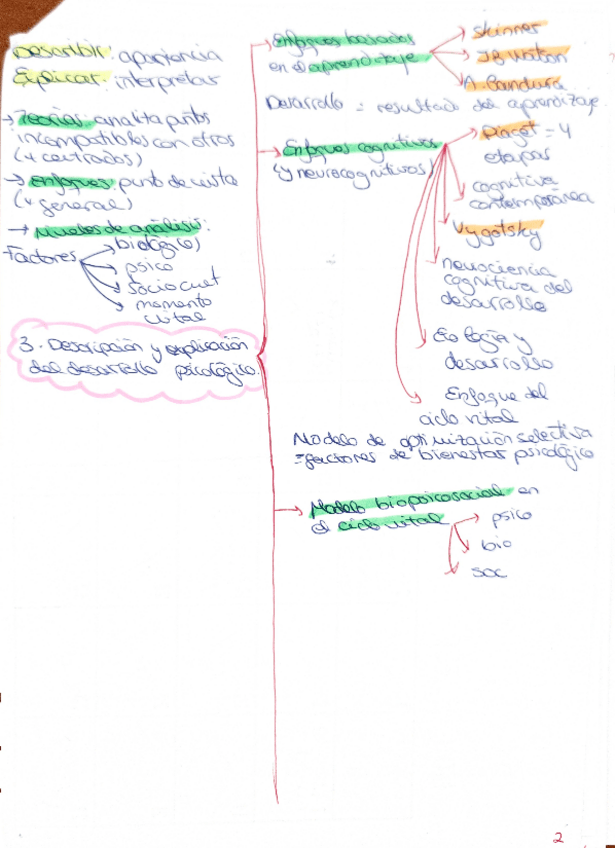 Describir: apariencia
Explicar: interpretar
→ Teorías: analiza puntos
incompatibles con otros
(+ centrados)
→ enfoques: punto de vista
(+ general)
→ Niveles de análisis:
Factores
biológico)
psico
sociocult
momento
vital
3. Descripción y explicación
del desarrollo psicológico.
Enfoques basados
en el aprendizaje
Skinner
JB Watson
A. Bandura
Desarrollo = resultado del aprendizaje
Enfoques cognitivos
(y neurocognitivos)
Piaget = 4
etapas
cognitiva
contemporánea
Vygotsky
neurociencia
cognitiva del
desarrollo
Etología y
desarrollo
Enfoque del
ciclo vital
Modelo de optimización selectiva
= factores de bienestar psicológico
Modelo biopsicosocial en
el ciclo vital
psico
bio
soc
2